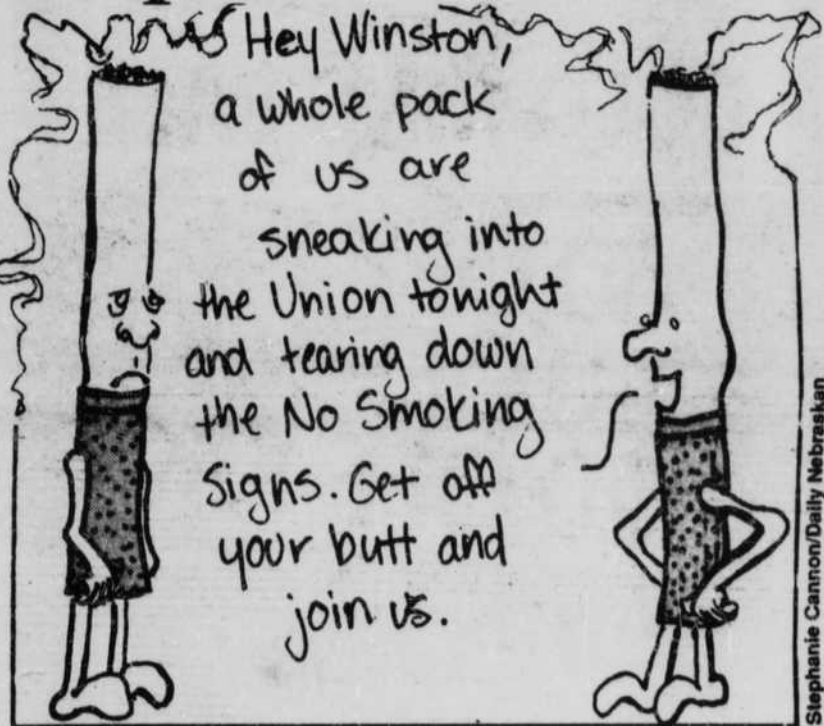 Hey Winston,
a whole pack
of us are
sneaking into
the Union tonight
and tearing down
the No Smoking
Signs. Get off
your butt and
join us.
Stephanie Cannon/Daily Nebraskan